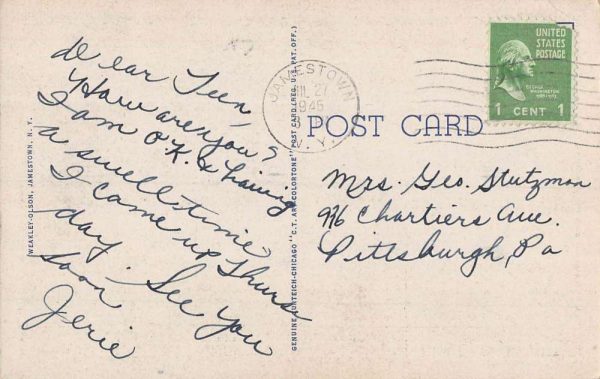 Dear Teen,
How are you?
I am O.K. & having
a swell time
I came up Thurs
day. See you
soon
Jerie
WEAKLEY-OLSON, JAMESTOWN, N. Y.
GENUINE CURTEICH-CHICAGO "C.T. ART-COLORTONE" POST CARD (REG. U.S. PAT. OFF.)
JAMESTOWN
JUL 21
1945
N.Y.
POST CARD
UNITED
STATES
POSTAGE
GEORGE
WASHINGTON
1 CENT 1
Mrs. Geo. Stutzman
976 Chartiers Ave.
Pittsburgh, Pa